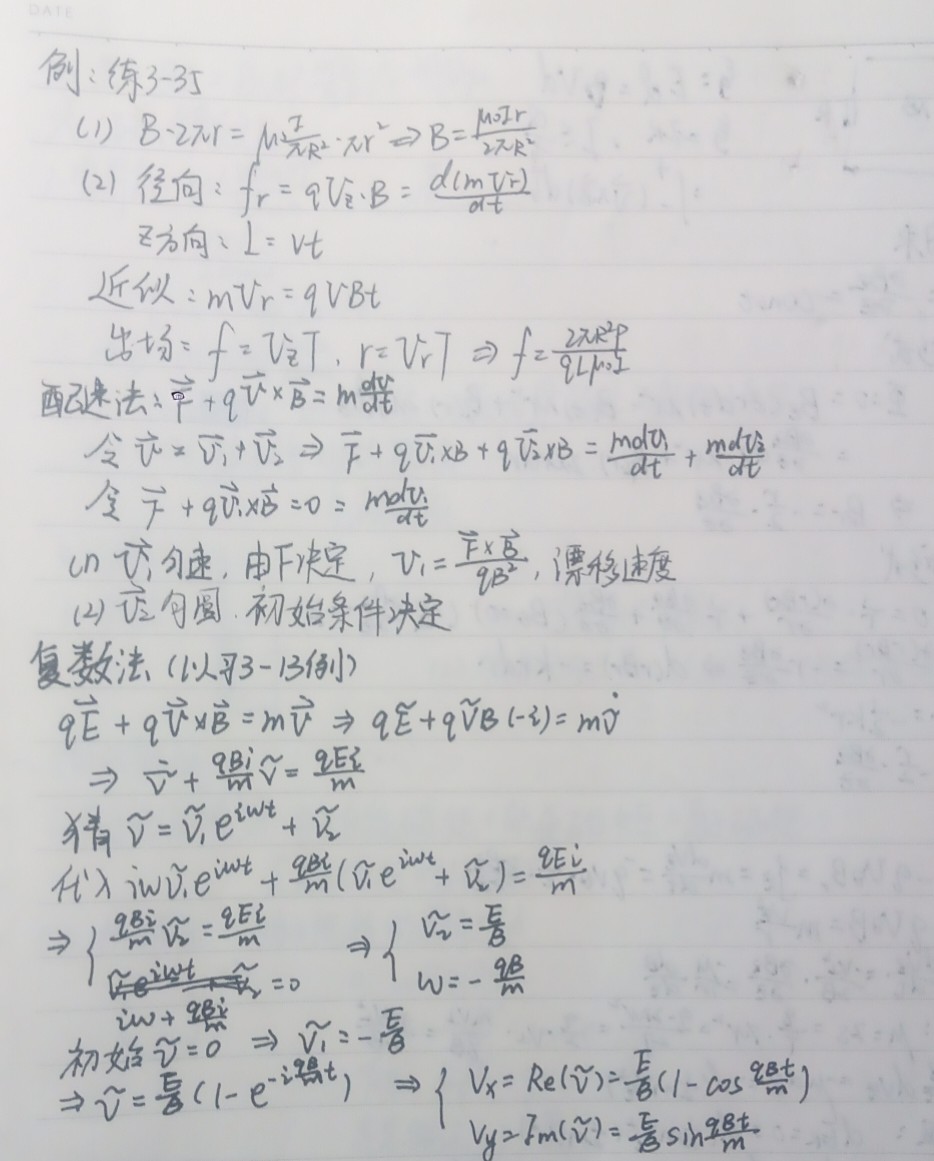 DATE
例：练3-35
(1) B·2πr = μ₀ I/πR² · πr² ⇒ B = μ₀Ir/2πR²
(2) 径向：fr = qVz·B = d(mVr)/dt
z方向：L = vt
近似：mVr = qVBt
出场：f = VzT, r = VrT ⇒ f = 2πR²P/qLμ₀I
配速法：F⃗ + qv⃗×B⃗ = m dv/dt
令 v⃗ = v⃗₁ + v⃗₂ ⇒ F⃗ + qv⃗₁×B + qv⃗₂×B = mdv⃗₁/dt + mdv⃗₂/dt
令 F⃗ + qv⃗₁×B⃗ = 0 = mdv₁/dt
(1) v⃗₁匀速，由F决定，v₁ = F⃗×B⃗/qB²，漂移速度
(2) v⃗₂匀圆．初始条件决定
复数法（以习3-13例）
qE⃗ + qv⃗×B⃗ = mv⃗̇ ⇒ qẼ + qṽB(-i) = mv̇
⇒ ṽ̇ + qBi/m ṽ = qEi/m
猜 ṽ = ṽ₁e^{iωt} + ṽ₂
代入 iωṽ₁e^{iωt} + qBi/m (ṽ₁e^{iωt} + ṽ₂) = qEi/m
⇒ { qBi/m ṽ₂ = qEi/m ⇒ { ṽ₂ = E/B
iω + qBi/m = 0 ω = -qB/m
初始 ṽ = 0 ⇒ ṽ₁ = -E/B
⇒ ṽ = E/B (1 - e^{-i qB/m t}) ⇒ { Vx = Re(ṽ) = E/B (1 - cos qBt/m)
Vy = Im(ṽ) = E/B sin qBt/m